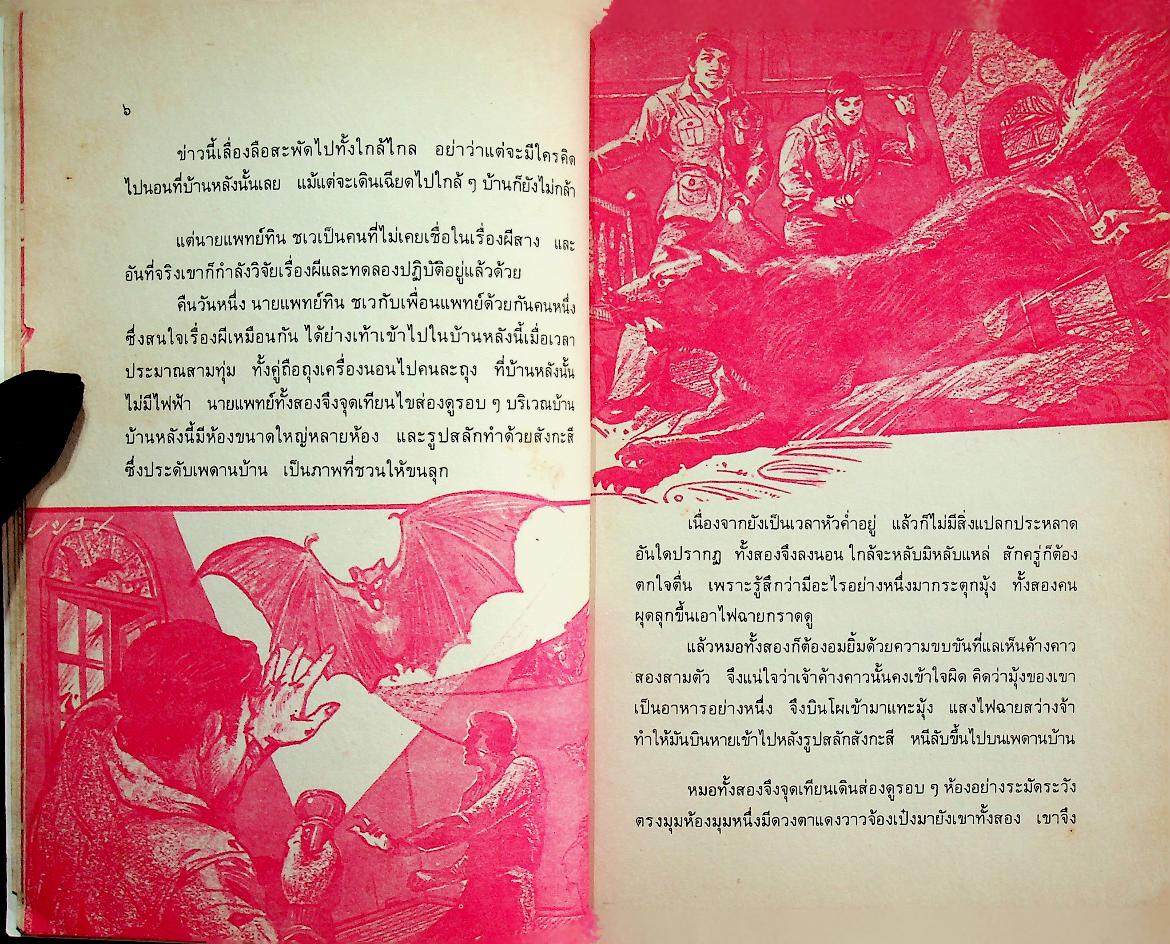 ๖
ข่าวนี้เลื่องลือสะพัดไปทั้งใกล้ไกล อย่าว่าแต่จะมีใครคิด
ไปนอนที่บ้านหลังนั้นเลย แม้แต่จะเดินเฉียดไปใกล้ ๆ บ้านก็ยังไม่กล้า
แต่นายแพทย์ทิน ชเวเป็นคนที่ไม่เคยเชื่อในเรื่องผีสาง และ
อันที่จริงเขาก็กำลังวิจัยเรื่องผีและทดลองปฏิบัติอยู่แล้วด้วย
คืนวันหนึ่ง นายแพทย์ทิน ชเวกับเพื่อนแพทย์ด้วยกันคนหนึ่ง
ซึ่งสนใจเรื่องผีเหมือนกัน ได้ย่างเท้าเข้าไปในบ้านหลังนี้เมื่อเวลา
ประมาณสามทุ่ม ทั้งคู่ถือถุงเครื่องนอนไปคนละถุง ที่บ้านหลังนั้น
ไม่มีไฟฟ้า นายแพทย์ทั้งสองจึงจุดเทียนไขส่องดูรอบ ๆ บริเวณบ้าน
บ้านหลังนี้มีห้องขนาดใหญ่หลายห้อง และรูปสลักทำด้วยสังกะสี
ซึ่งประดับเพดานบ้าน เป็นภาพที่ชวนให้ขนลุก
เนื่องจากยังเป็นเวลาหัวค่ำอยู่ แล้วก็ไม่มีสิ่งแปลกประหลาด
อันใดปรากฏ ทั้งสองจึงลงนอน ใกล้จะหลับมิหลับแหล่ สักครู่ก็ต้อง
ตกใจตื่น เพราะรู้สึกว่ามีอะไรอย่างหนึ่งมากระตุกมุ้ง ทั้งสองคน
ผุดลุกขึ้นเอาไฟฉายกราดดู
แล้วหมอทั้งสองก็ต้องอมยิ้มด้วยความขบขันที่แลเห็นค้างคาว
สองสามตัว จึงแน่ใจว่าเจ้าค้างคาวนั้นคงเข้าใจผิด คิดว่ามุ้งของเขา
เป็นอาหารอย่างหนึ่ง จึงบินโผเข้ามาแทะมุ้ง แสงไฟฉายสว่างจ้า
ทำให้มันบินหายเข้าไปหลังรูปสลักสังกะสี หนีลับขึ้นไปบนเพดานบ้าน
หมอทั้งสองจึงจุดเทียนเดินส่องดูรอบ ๆ ห้องอย่างระมัดระวัง
ตรงมุมห้องมุมหนึ่งมีดวงตาแดงวาวจ้องเป๋งมายังเขาทั้งสอง เขาจึง